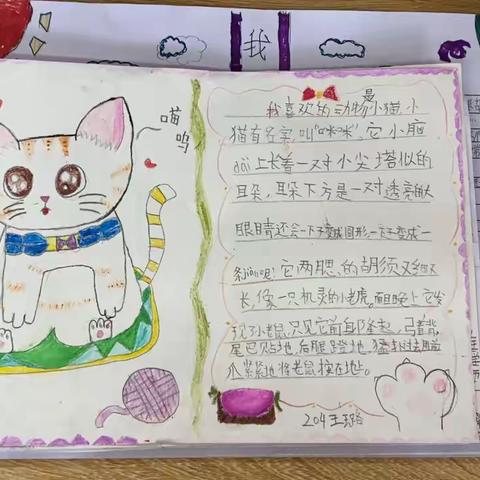 我
喵呜
我喜欢的动物是小猫,小
猫有名字,叫“咪咪”,它小脑
dài上长着一对小尖塔似的
耳朵,耳朵下方是一对透亮的大
眼睛还会一下子变成圆形,一下子变成一
条line呢!它两腮的胡须又细又
长,像一只机灵的小老虎。每晚上它发
现小老鼠,只见它前身耸起,弓着背,
尾巴贴地,后腿蹬地,猛扑过去
紧紧地将老鼠按在地上。
204王璐